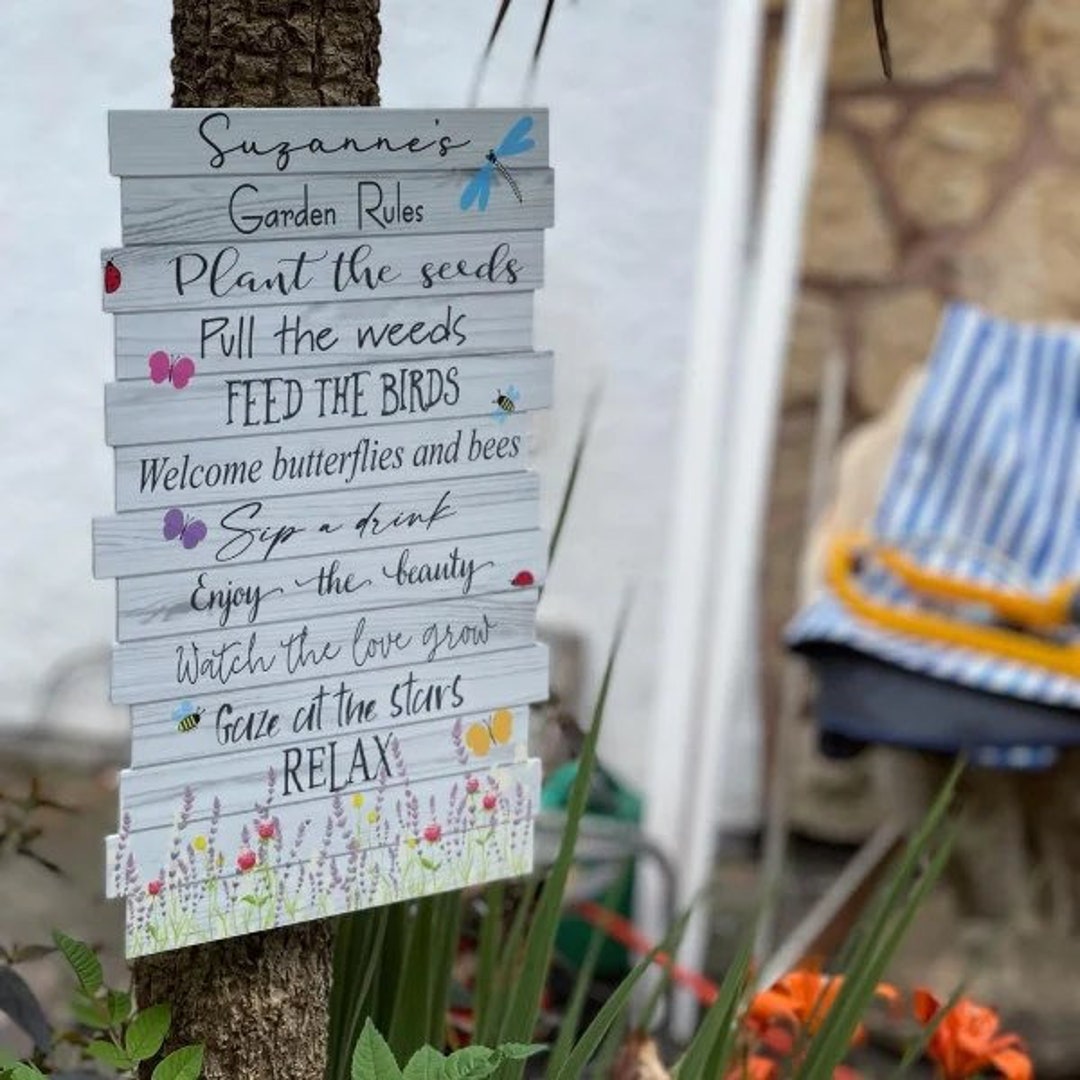 Suzanne's
Garden Rules
Plant the seeds
Pull the weeds
FEED THE BIRDS
Welcome butterflies and bees
Sip a drink
Enjoy the beauty
Watch the love grow
Gaze at the stars
RELAX